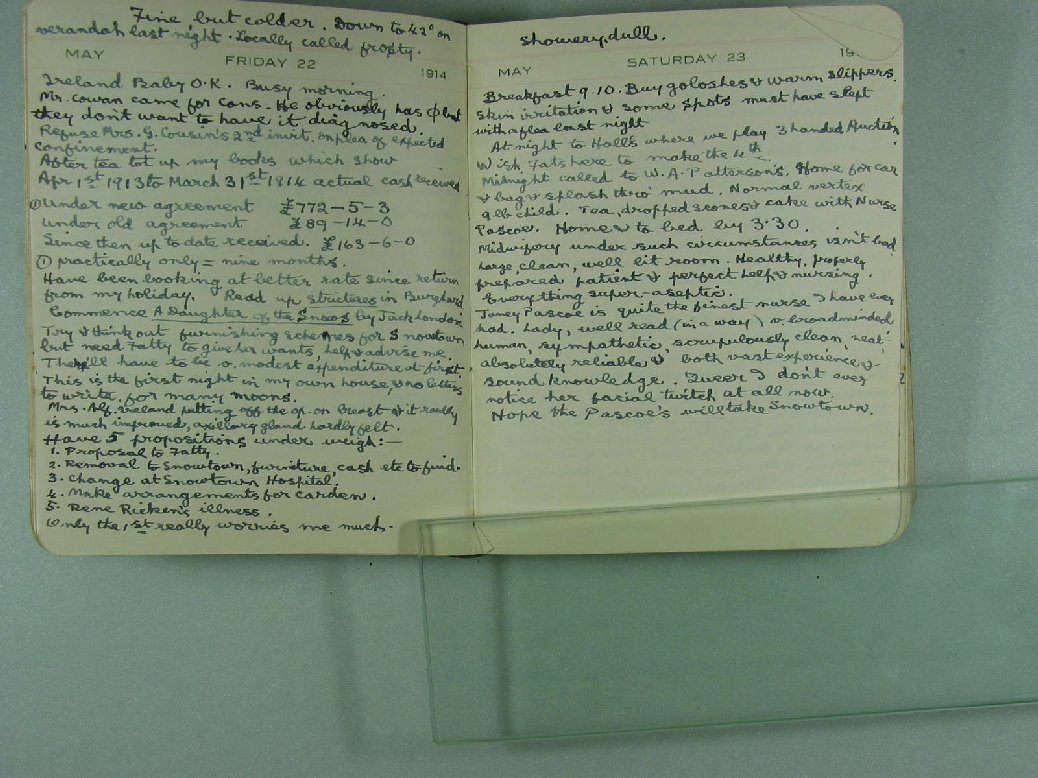 Fine but colder. Down to 42° on
verandah last night. Locally called frosty.
MAY FRIDAY 22 1914
Ireland Baby O.K. Busy morning.
Mr. Cowan came for cons. He obviously has φ but
they don't want to have it diagnosed.
Refuse Mrs. G. Cousin's 2nd invit. on plea of expected
confinement.
After tea tot up my books which show
Apr 1st 1913 to March 31st 1914 actual cash received
① Under new agreement £772-5-3
under old agreement £89-14-0
Since then up to date received. £163-6-0
① practically only = nine months.
Have been booking at better rate since return
from my holiday. Read up strictures in Burghard
Commence A Daughter of the Snows by Jack London
Try & think out furnishing schemes for Snowtown
but need Fatty to give her wants, help & advise me.
They'll have to be v. modest expenditure at first.
This is the first night in my own house, & no letters
to write, for many moons.
Mrs. Alf. Ireland putting off the op. on breast & it really
is much improved, axillary gland hardly felt.
Have 5 propositions under weigh:—
1. Proposal to Fatty.
2. Removal to Snowtown, furniture, cash etc to find.
3. Change at Snowtown Hospital.
4. Make arrangements for Carden.
5. Rene Ricken's illness.
Only the 1st really worries me much.
Showery, dull.
MAY SATURDAY 23 19
Breakfast 9.10. Buy goloshes & warm slippers.
Skin irritation & some spots must have slept
with a flea last night
At night to Hall's where we play 3 handed Auction
Wish Fats here to make the 4th
Midnight called to W.A. Patterson's. Home for car
& bag & splash thro' mud. Normal vertex
9lb child. Tea, dropped scones & cake with Nurse
Pascoe. Home & to bed by 3.30.
Midwifery under such circumstances isn't bad
Large, clean, well lit room. Healthy, properly
prepared patient & perfect help & nursing.
Everything super-aseptic.
Janey Pascoe is quite the finest nurse I have ever
had. Lady, well read (in a way) v. broadminded
human, sympathetic, scrupulously clean, neat
absolutely reliable & both vast experience &
sound knowledge. Queer I don't ever
notice her facial twitch at all now.
Hope the Pascoe's will take Snowtown.